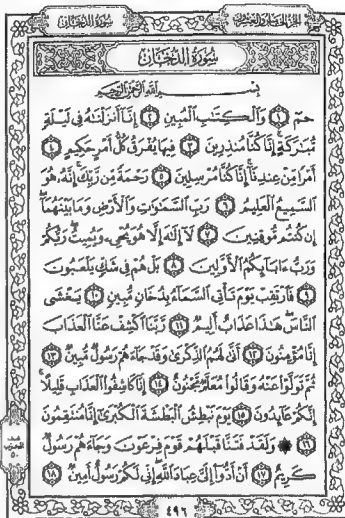 الجزء الخامس والعشرون
سورة الدخان
سُورَةُ الدُّخَانِ
بِسْمِ اللَّهِ الرَّحْمَٰنِ الرَّحِيمِ
حمٓ ۝١ وَٱلْكِتَٰبِ ٱلْمُبِينِ ۝٢ إِنَّآ أَنزَلْنَٰهُ فِى لَيْلَةٍ
مُّبَٰرَكَةٍ إِنَّا كُنَّا مُنذِرِينَ ۝٣ فِيهَا يُفْرَقُ كُلُّ أَمْرٍ حَكِيمٍ ۝٤
أَمْرًا مِّنْ عِندِنَآ إِنَّا كُنَّا مُرْسِلِينَ ۝٥ رَحْمَةً مِّن رَّبِّكَ إِنَّهُۥ هُوَ
ٱلسَّمِيعُ ٱلْعَلِيمُ ۝٦ رَبِّ ٱلسَّمَٰوَٰتِ وَٱلْأَرْضِ وَمَا بَيْنَهُمَآ
إِن كُنتُم مُّوقِنِينَ ۝٧ لَآ إِلَٰهَ إِلَّا هُوَ يُحْىِۦ وَيُمِيتُ رَبُّكُمْ
وَرَبُّ ءَابَآئِكُمُ ٱلْأَوَّلِينَ ۝٨ بَلْ هُمْ فِى شَكٍّ يَلْعَبُونَ
۝٩ فَٱرْتَقِبْ يَوْمَ تَأْتِى ٱلسَّمَآءُ بِدُخَانٍ مُّبِينٍ ۝١٠ يَغْشَى
ٱلنَّاسَ هَٰذَا عَذَابٌ أَلِيمٌ ۝١١ رَّبَّنَا ٱكْشِفْ عَنَّا ٱلْعَذَابَ
إِنَّا مُؤْمِنُونَ ۝١٢ أَنَّىٰ لَهُمُ ٱلذِّكْرَىٰ وَقَدْ جَآءَهُمْ رَسُولٌ مُّبِينٌ ۝١٣
ثُمَّ تَوَلَّوْا۟ عَنْهُ وَقَالُوا۟ مُعَلَّمٌ مَّجْنُونٌ ۝١٤ إِنَّا كَاشِفُوا۟ ٱلْعَذَابِ قَلِيلًا
إِنَّكُمْ عَآئِدُونَ ۝١٥ يَوْمَ نَبْطِشُ ٱلْبَطْشَةَ ٱلْكُبْرَىٰٓ إِنَّا مُنتَقِمُونَ
۝١٦ ۞ وَلَقَدْ فَتَنَّا قَبْلَهُمْ قَوْمَ فِرْعَوْنَ وَجَآءَهُمْ رَسُولٌ
كَرِيمٌ ۝١٧ أَنْ أَدُّوٓا۟ إِلَىَّ عِبَادَ ٱللَّهِ إِنِّى لَكُمْ رَسُولٌ أَمِينٌ ۝١٨
٤٩٦